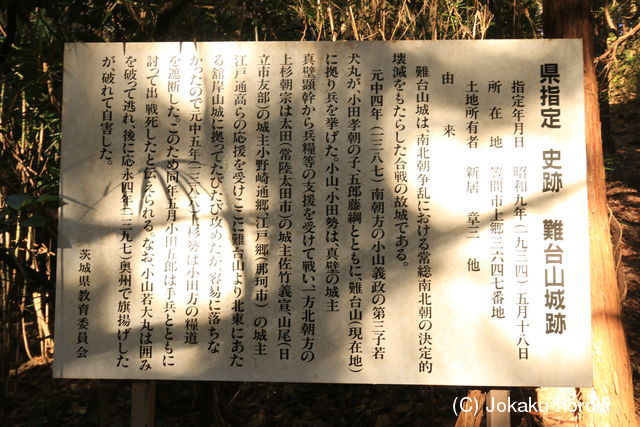 県指定　史跡　難台山城跡
指定年月日　昭和九年（一九三四）五月十八日
所在地　笠間市上郷三六四七番地
土地所有者　新居　章三　他
由来
難台山城は、南北朝争乱における常総南北朝の決定的
壊滅をもたらした合戦の故城である。
元中四年（一三八七）南朝方の小山義政の第三子若
犬丸が、小田孝朝の子、五郎藤綱とともに、難台山（現在地）
に拠り兵を挙げた。小山、小田勢は、真壁の城主
真壁顕幹から兵糧等の支援を受けて戦い、一方北朝方の
上杉朝宗は太田（常陸太田市）の城主佐竹義宣、山尾（日
立市友部）の城主小野崎通郷、江戸郷（那珂市）の城主
江戸通高らの応援を受け、ここに難台山より北東にあた
る舘岸山城に拠ってたびたび攻めたが、容易に落ちな
かったので元中五年（一三八八）上杉勢は小田方の糧道
を遮断した。このため同年五月小田五郎は手兵とともに
討って出、戦死したと伝えられる。なお、小山若犬丸は囲み
を破って逃れ、後に応永四年（一三九七）奥州で旗揚げした
が破れて自害した。
茨城県教育委員会
(C) Jokaku-horoki